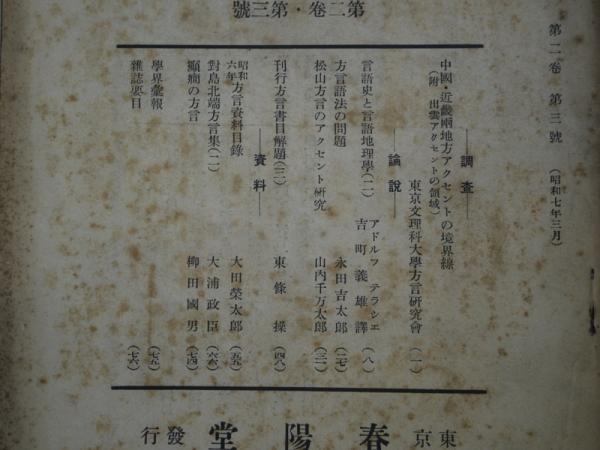 第二卷・第三號
第二卷 第三號 (昭和七年三月)
調査
中國・近畿兩地方アクセントの境界線
(附 出雲アクセントの領域)
東京文理科大學方言研究會 (一)
論說
言語史と言語地理學(二) アドルフ テラシエ 吉町義雄譯 (八)
方言語法の問題 永田吉太郎 (二七)
松山方言のアクセント硏究 山内千万太郎 (三一)
資料
刊行方言書目解題(三) 東條操 (四八)
昭和六年方言資料目錄 大田榮太郎 (五五)
對島北端方言集(二) 大浦政臣 (六六)
癲癇の方言 柳田國男 (七四)
學界彙報 (七五)
雜誌要目 (七六)
東京 春陽堂 發行